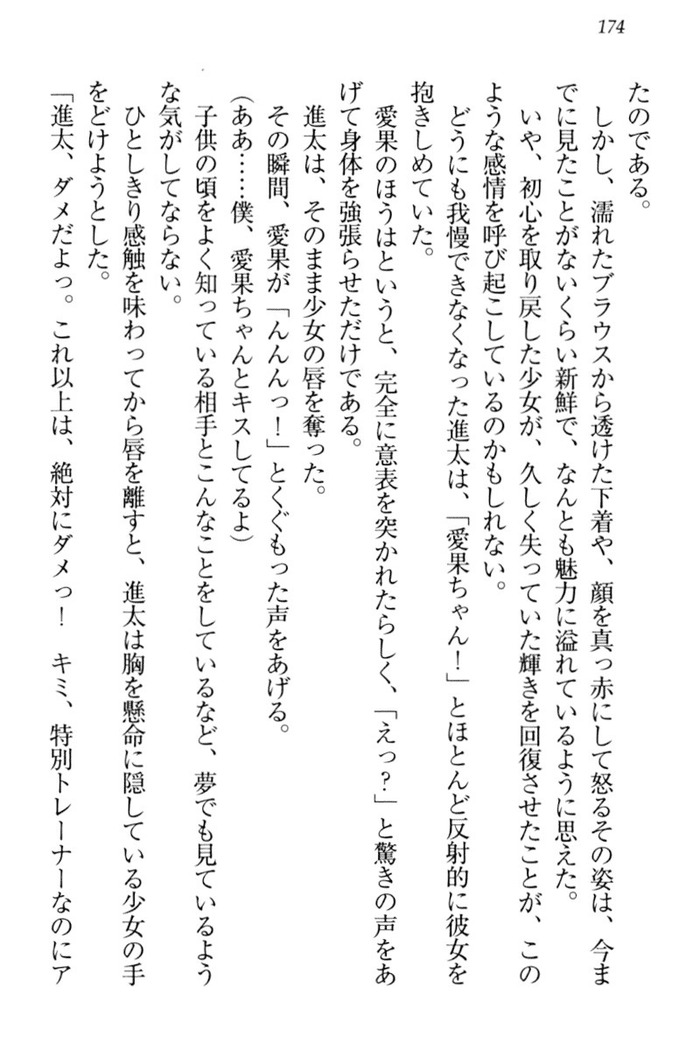 174
たのである。
しかし、濡れたブラウスから透けた下着や、顔を真っ赤にして怒るその姿は、今ま
でに見たことがないくらい新鮮で、なんとも魅力に溢れているように思えた。
いや、初心を取り戻した少女が、久しく失っていた輝きを回復させたことが、この
ような感情を呼び起こしているのかもしれない。
どうにも我慢できなくなった進太は、「愛果ちゃん！」とほとんど反射的に彼女を
抱きしめていた。
愛果のほうはというと、完全に意表を突かれたらしく、「えっ？」と驚きの声をあ
げて身体を強張らせただけである。
進太は、そのまま少女の唇を奪った。
その瞬間、愛果が「んんんっ！」とくぐもった声をあげる。
（ああ……僕、愛果ちゃんとキスしてるよ）
子供の頃をよく知っている相手とこんなことをしているなど、夢でも見ているよう
な気がしてならない。
ひとしきり感触を味わってから唇を離すと、進太は胸を懸命に隠している少女の手
をどけようとした。
「進太、ダメだよっ。これ以上は、絶対にダメっ！　キミ、特別トレーナーなのにア